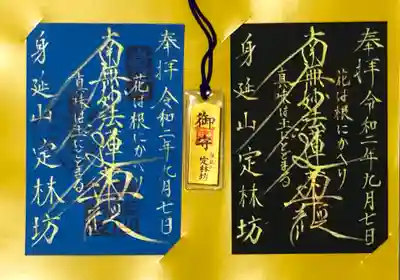 奉拝 令和二年九月七日
花は根にかへり
南無妙法蓮華経
真味は土にとどまる
身延山 定林坊
御守
定林坊
奉拝 令和二年九月七日
南無妙法蓮華経
花は根にかへり
真味は土にとどまる
身延山 定林坊